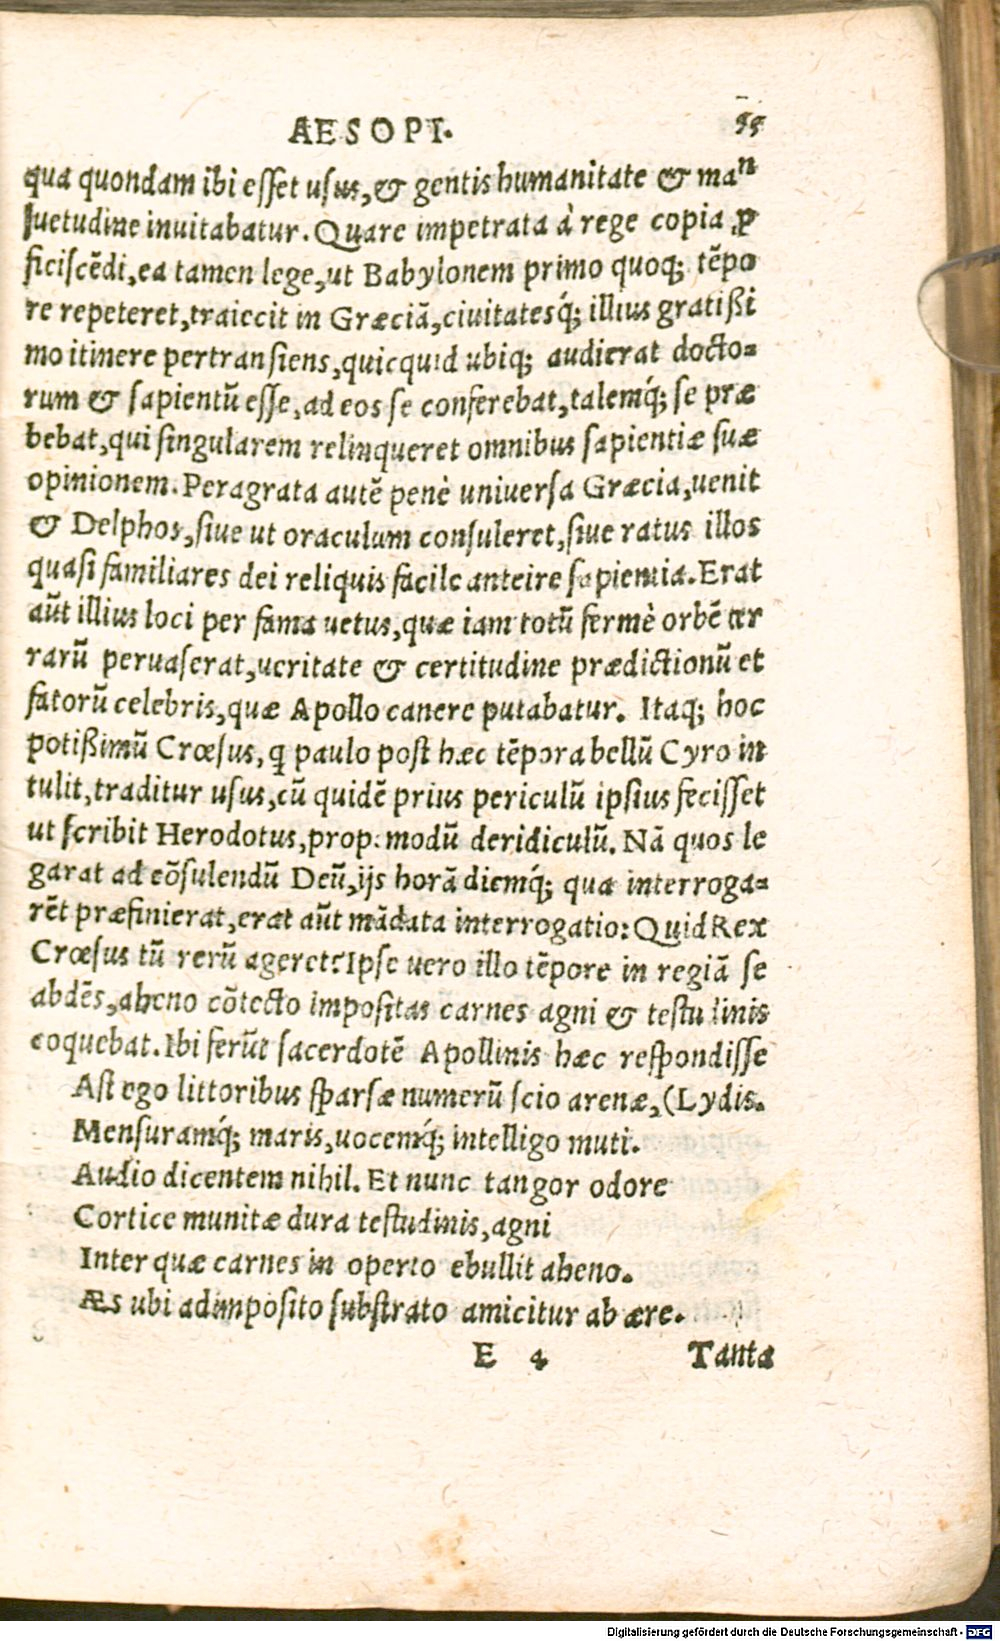 AESOPI. 55
qua quondam ibi esset usus, & gentis humanitate & man
suetudine inuitabatur. Quare impetrata à rege copia ꝓ
ficiscẽdi, ea tamen lege, ut Babylonem primo quoq; tẽpo
re repeteret, traiecit in Græciã, ciuitatesq́; illius gratißi
mo itinere pertransiens, quicquid ubiq; audierat docto-
rum & sapientũ esse, ad eos se conferebat, talemq́; se præ
bebat, qui singularem relinqueret omnibus sapientiæ suæ
opinionem. Peragrata autẽ penè uniuersa Græcia, uenit
& Delphos, siue ut oraculum consuleret, siue ratus illos
quasi familiares dei reliquis facile anteire sapientia. Erat
aũt illius loci per fama uetus, quæ iam totũ fermè orbẽ ter
rarũ peruaserat, ueritate & certitudine prædictionũ et
fatorũ celebris, quæ Apollo canere putabatur. Itaq; hoc
potißimũ Crœsus, q paulo post hæc tẽpora bellũ Cyro in
tulit, traditur usus, cũ quidẽ prius periculũ ipsius fecisset
ut scribit Herodotus, prop: modũ deridiculũ. Nã quos le
garat ad cõsulendũ Deũ, ijs horã diemq́; qua interroga-
rẽt præfinierat, erat aũt mãdata interrogatio: Quid Rex
Crœsus tũ rerũ ageret? Ipse uero illo tẽpore in regiã se
abdẽs, aheno cõtecto impositas carnes agni & testudinis
coquebat. Ibi ferũt sacerdotẽ Apollinis hæc respondisse
Ast ego littoribus sparsæ numerũ scio arenæ, (Lydis.
Mensuramq́; maris, uocemq́; intelligo muti.
Audio dicentem nihil. Et nunc tangor odore
Cortice munitæ dura testudinis, agni
Inter quæ carnes in operto ebullit aheno.
Æs ubi adimposito substrato amicitur ab ære.
E 4 Tanta
Digitalisierung gefördert durch die Deutsche Forschungsgemeinschaft - DFG